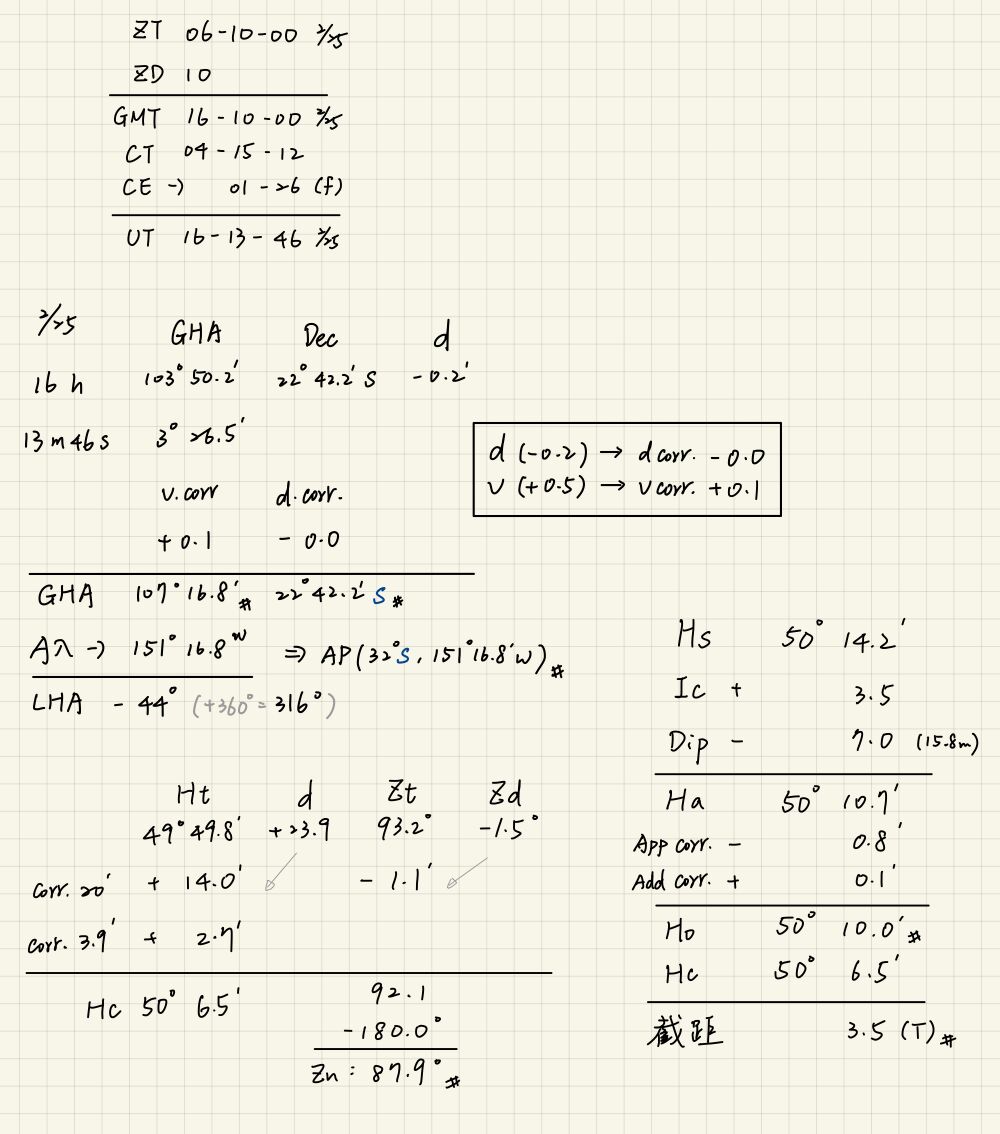 ZT 06-10-00 2/25
ZD 10
GMT 16-10-00 2/25
CT 04-15-12
CE -) 01-26 (f)
UT 16-13-46 2/25
2/25 GHA Dec d
16 h 103° 50.2' 22° 42.2' S -0.2'
13 m 46 s 3° 26.5'
v.corr d.corr.
+0.1 -0.0
d (-0.2) → d corr. -0.0
v (+0.5) → v corr. +0.1
GHA 107° 16.8' # 22° 42.2' S #
Aλ -) 151° 16.8 W ⇒ AP (32°S, 151° 16.8' W) #
LHA -44° (+360° = 316°)
Ht d Zt Zd
49° 49.8' +23.9 93.2° -1.5°
corr. 20' + 14.0' -1.1'
corr. 3.9' + 2.7'
Hc 50° 6.5' 92.1
-180.0°
Zn : 87.9° #
Hs 50° 14.2'
Ic + 3.5
Dip - 7.0 (15.8m)
Ha 50° 10.7'
App corr. - 0.8'
Add corr. + 0.1'
Ho 50° 10.0' #
Hc 50° 6.5'
截距 3.5 (T) #